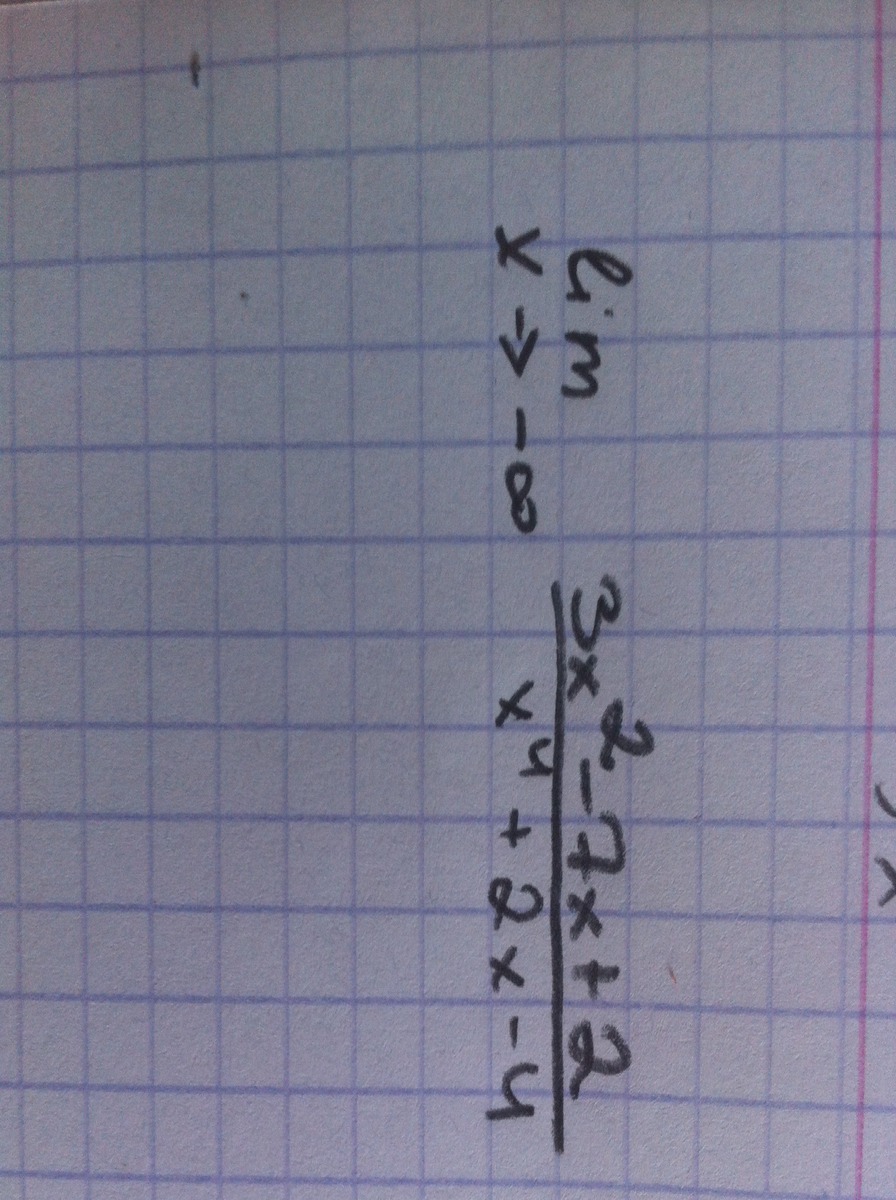 lim 3x² - 7x + 2
x → -∞ x⁴ + 2x - 4